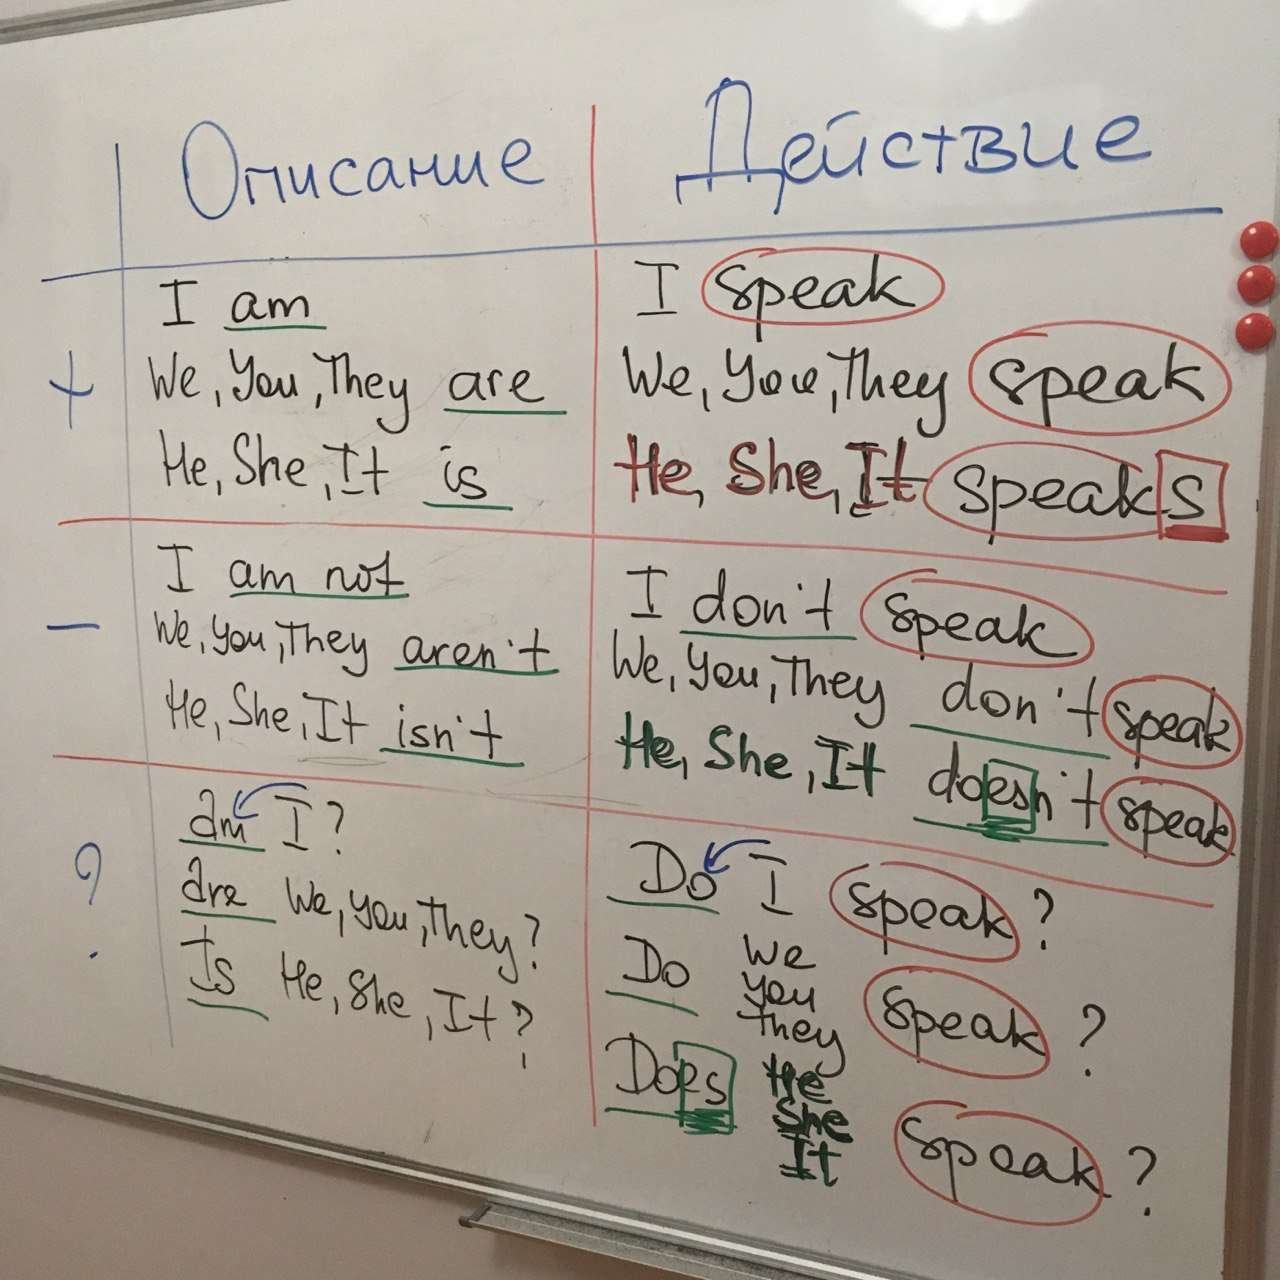 Описание
Действие
+
I am
We, You, They are
He, She, It is
I speak
We, You, They speak
He, She, It speaks
−
I am not
We, you, They aren't
He, She, It isn't
I don't speak
We, You, They don't speak
He, She, It doesn't speak
?
am I?
are We, you, They?
Is He, She, It?
Do I speak?
Do we you they speak?
Does He She It speak?